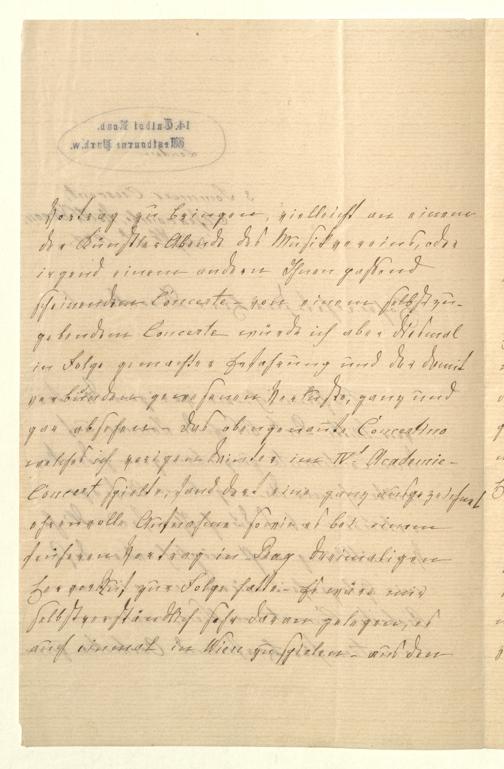 Vortrag zu bringen, vielleicht an einem
der Künstler Abende des Musikvereins, oder
irgend einem andern Ihnen passend
scheinenden Concerte – von einem selbstzu-
gebenden Concerte würde ich aber diesmal
in Folge gemachter Erfahrung und der damit
verbunden gewesenen Verluste, ganz und
gar absehen – das obengenannte Concertino
welches ich vorigen Winter im IVt Academie-
Concert spielte, fand dort eine ganz ausgezeichnet
ehrenvolle Aufnahme sowie es bei einem
früheren Vortrag in Prag dreimaligen
Hervorruf zur Folge hatte. Es wäre mir
selbstverständlich sehr daran gelegen, es
auch einmal in Wien zu spielen – aus den